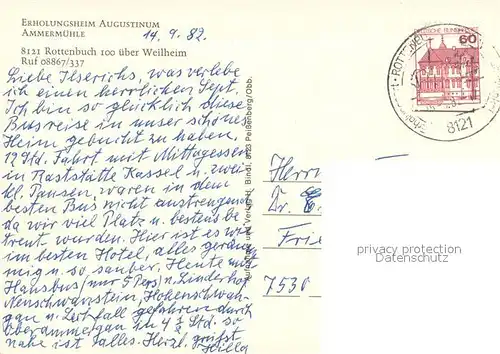 ERHOLUNGSHEIM AUGUSTINUM
AMMERMÜHLE
14.9.82.
8121 Rottenbuch 100 über Weilheim
Ruf 08867/337
Liebe Ilserichs, was verlebe
ich einen herrlichen Sept.
Ich bin so glücklich diese
Busreise in unser schönes
Heim gebucht zu haben.
12 Std. Fahrt mit Mittagessen
in Raststätte Kassel u. zwei
kl. Pausen, waren in dem
besten Bus nicht anstrengend
da wir viel Platz u. bestens be
treut wurden. Hier ist es wie
im besten Hotel, alles geräu
mig u. so sauber. Heute mit
Hausbus (nur 5 Pers) n. Linderhof
Neuschwanstein, Hohenschwan-
gau n. gefahren durch
Oberammergau in 4 ½ Std. so
nahe ist alles. Herzl. grüßt
Aufnahme und Verlag H. Bindl, 8123 Peißenberg/Obb.
DEUTSCHE BUNDESPOST
60
ROTTENBUCH
8121
Herrn
Dr. E
Frie
7530
privacy protection
Datenschutz